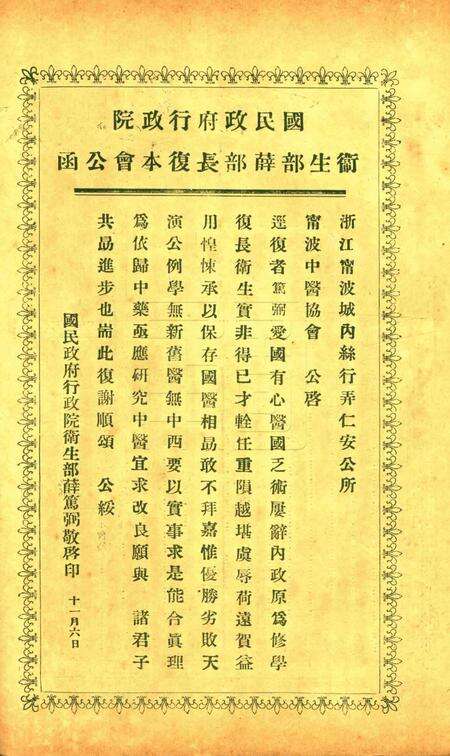 國民政府行政院
衞生部薛部長復本會公函
浙江甯波城內絲行弄仁安公所
甯波中醫協會　公啓
逕復者篤弼愛國有心醫國乏術屢辭內政原爲修學
復長衛生實非得已才輇任重隕越堪虞辱荷遠賀益
用惶悚承以保存國醫相勗敢不拜嘉惟優勝劣敗天
演公例學無新舊醫無中西要以實事求是能合眞理
爲依歸中藥亟應研究中醫宜求改良願與　諸君子
共勗進步也耑此復謝順頌　公綏
國民政府行政院衛生部薛篤弼敬啓印　十一月六日